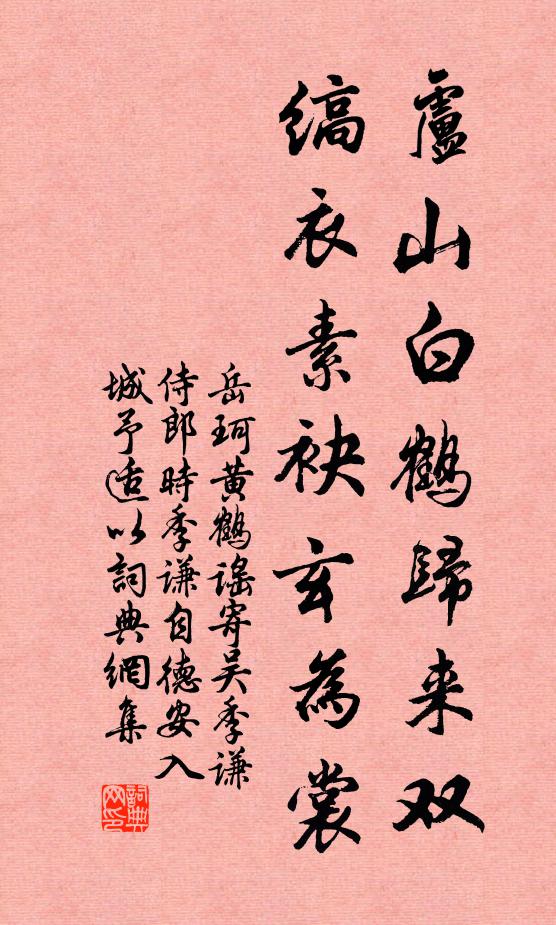 廬山白鶴歸来双
缟衣素袂玄為裳
岳珂黃鶴謠寄吴季谦
侍郎時季谦自德安入
城予适以詞典網集
詞典网印